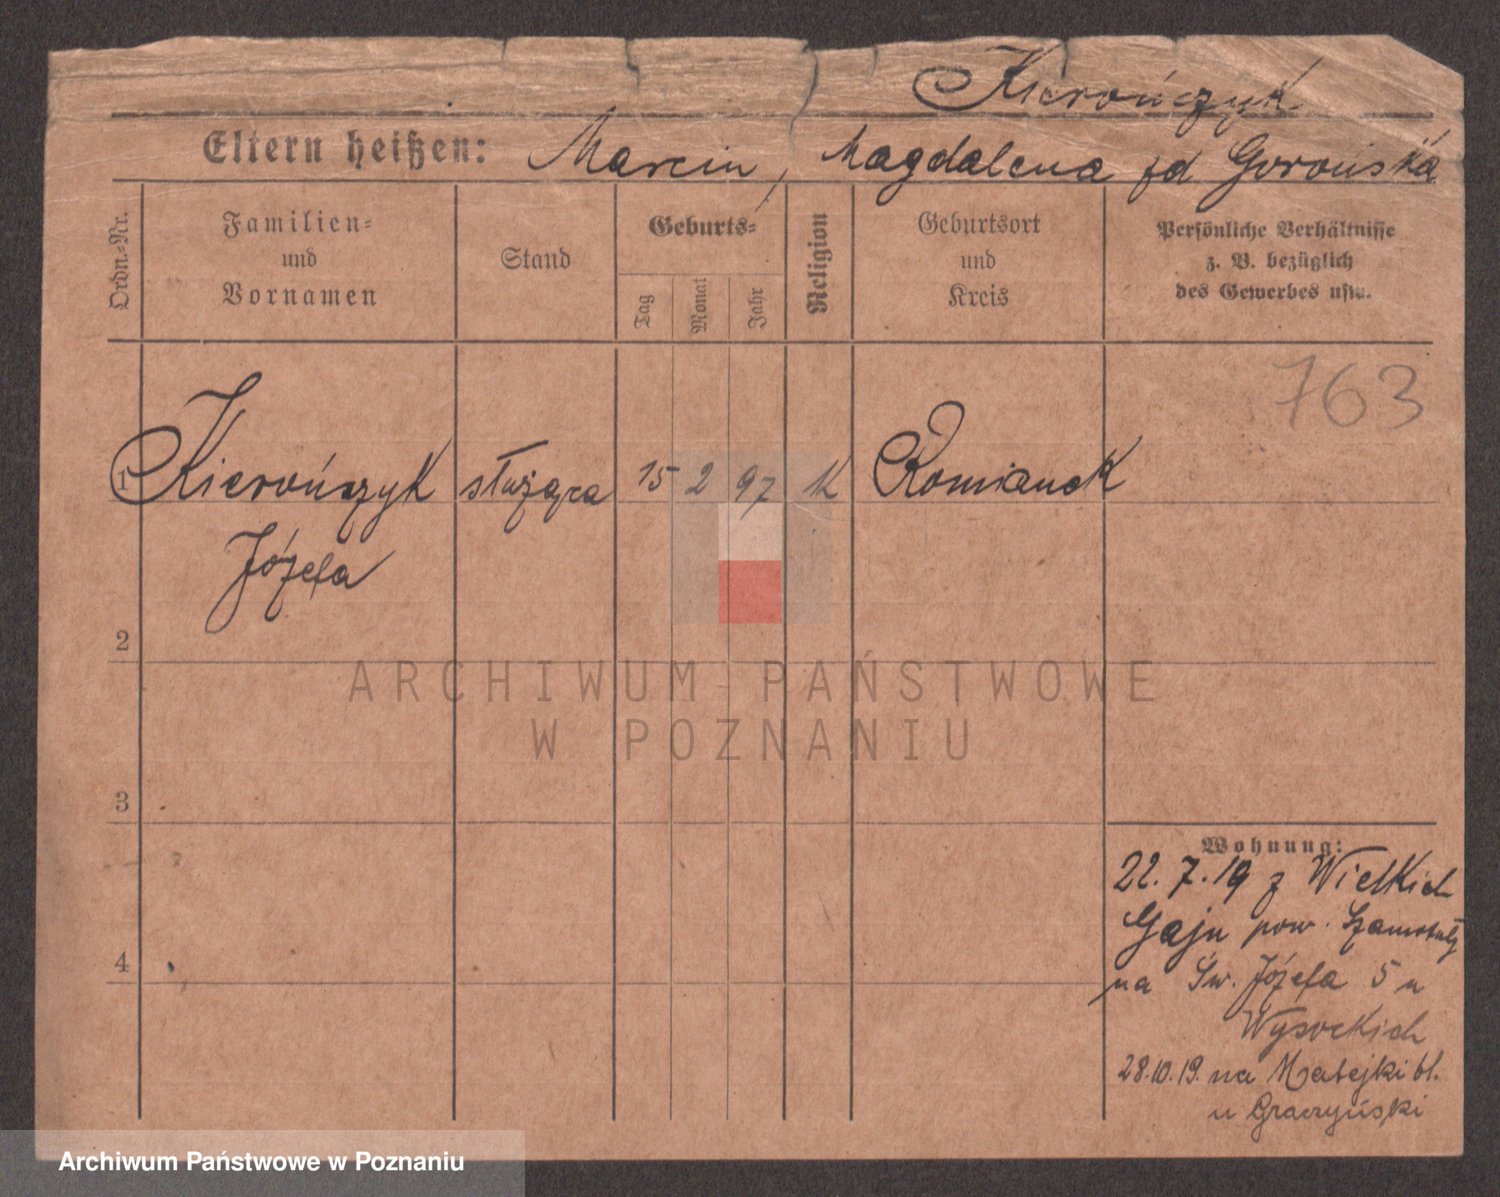 Kierończyk
Eltern heißen: Marcin, Magdalena fd Gorońska
Ordn.-Nr.
Familien-
und
Vornamen
Stand
Geburts-
Tag
Monat
Jahr
Religion
Geburtsort
und
Kreis
Persönliche Verhältnisse
z. B. bezüglich
des Gewerbes usw.
763
1 Kierończyk służąca 15 2 97 K Romianek
Józefa
2
ARCHIWUM PAŃSTWOWE
W POZNANIU
3
Wohnung:
22.7.19 z Wielkich
Gaju pow. Szamotuły
4
na Św. Józefa 5 u
Wysockich
28.10.19. na Matejki 61.
u Graczyński
Archiwum Państwowe w Poznaniu